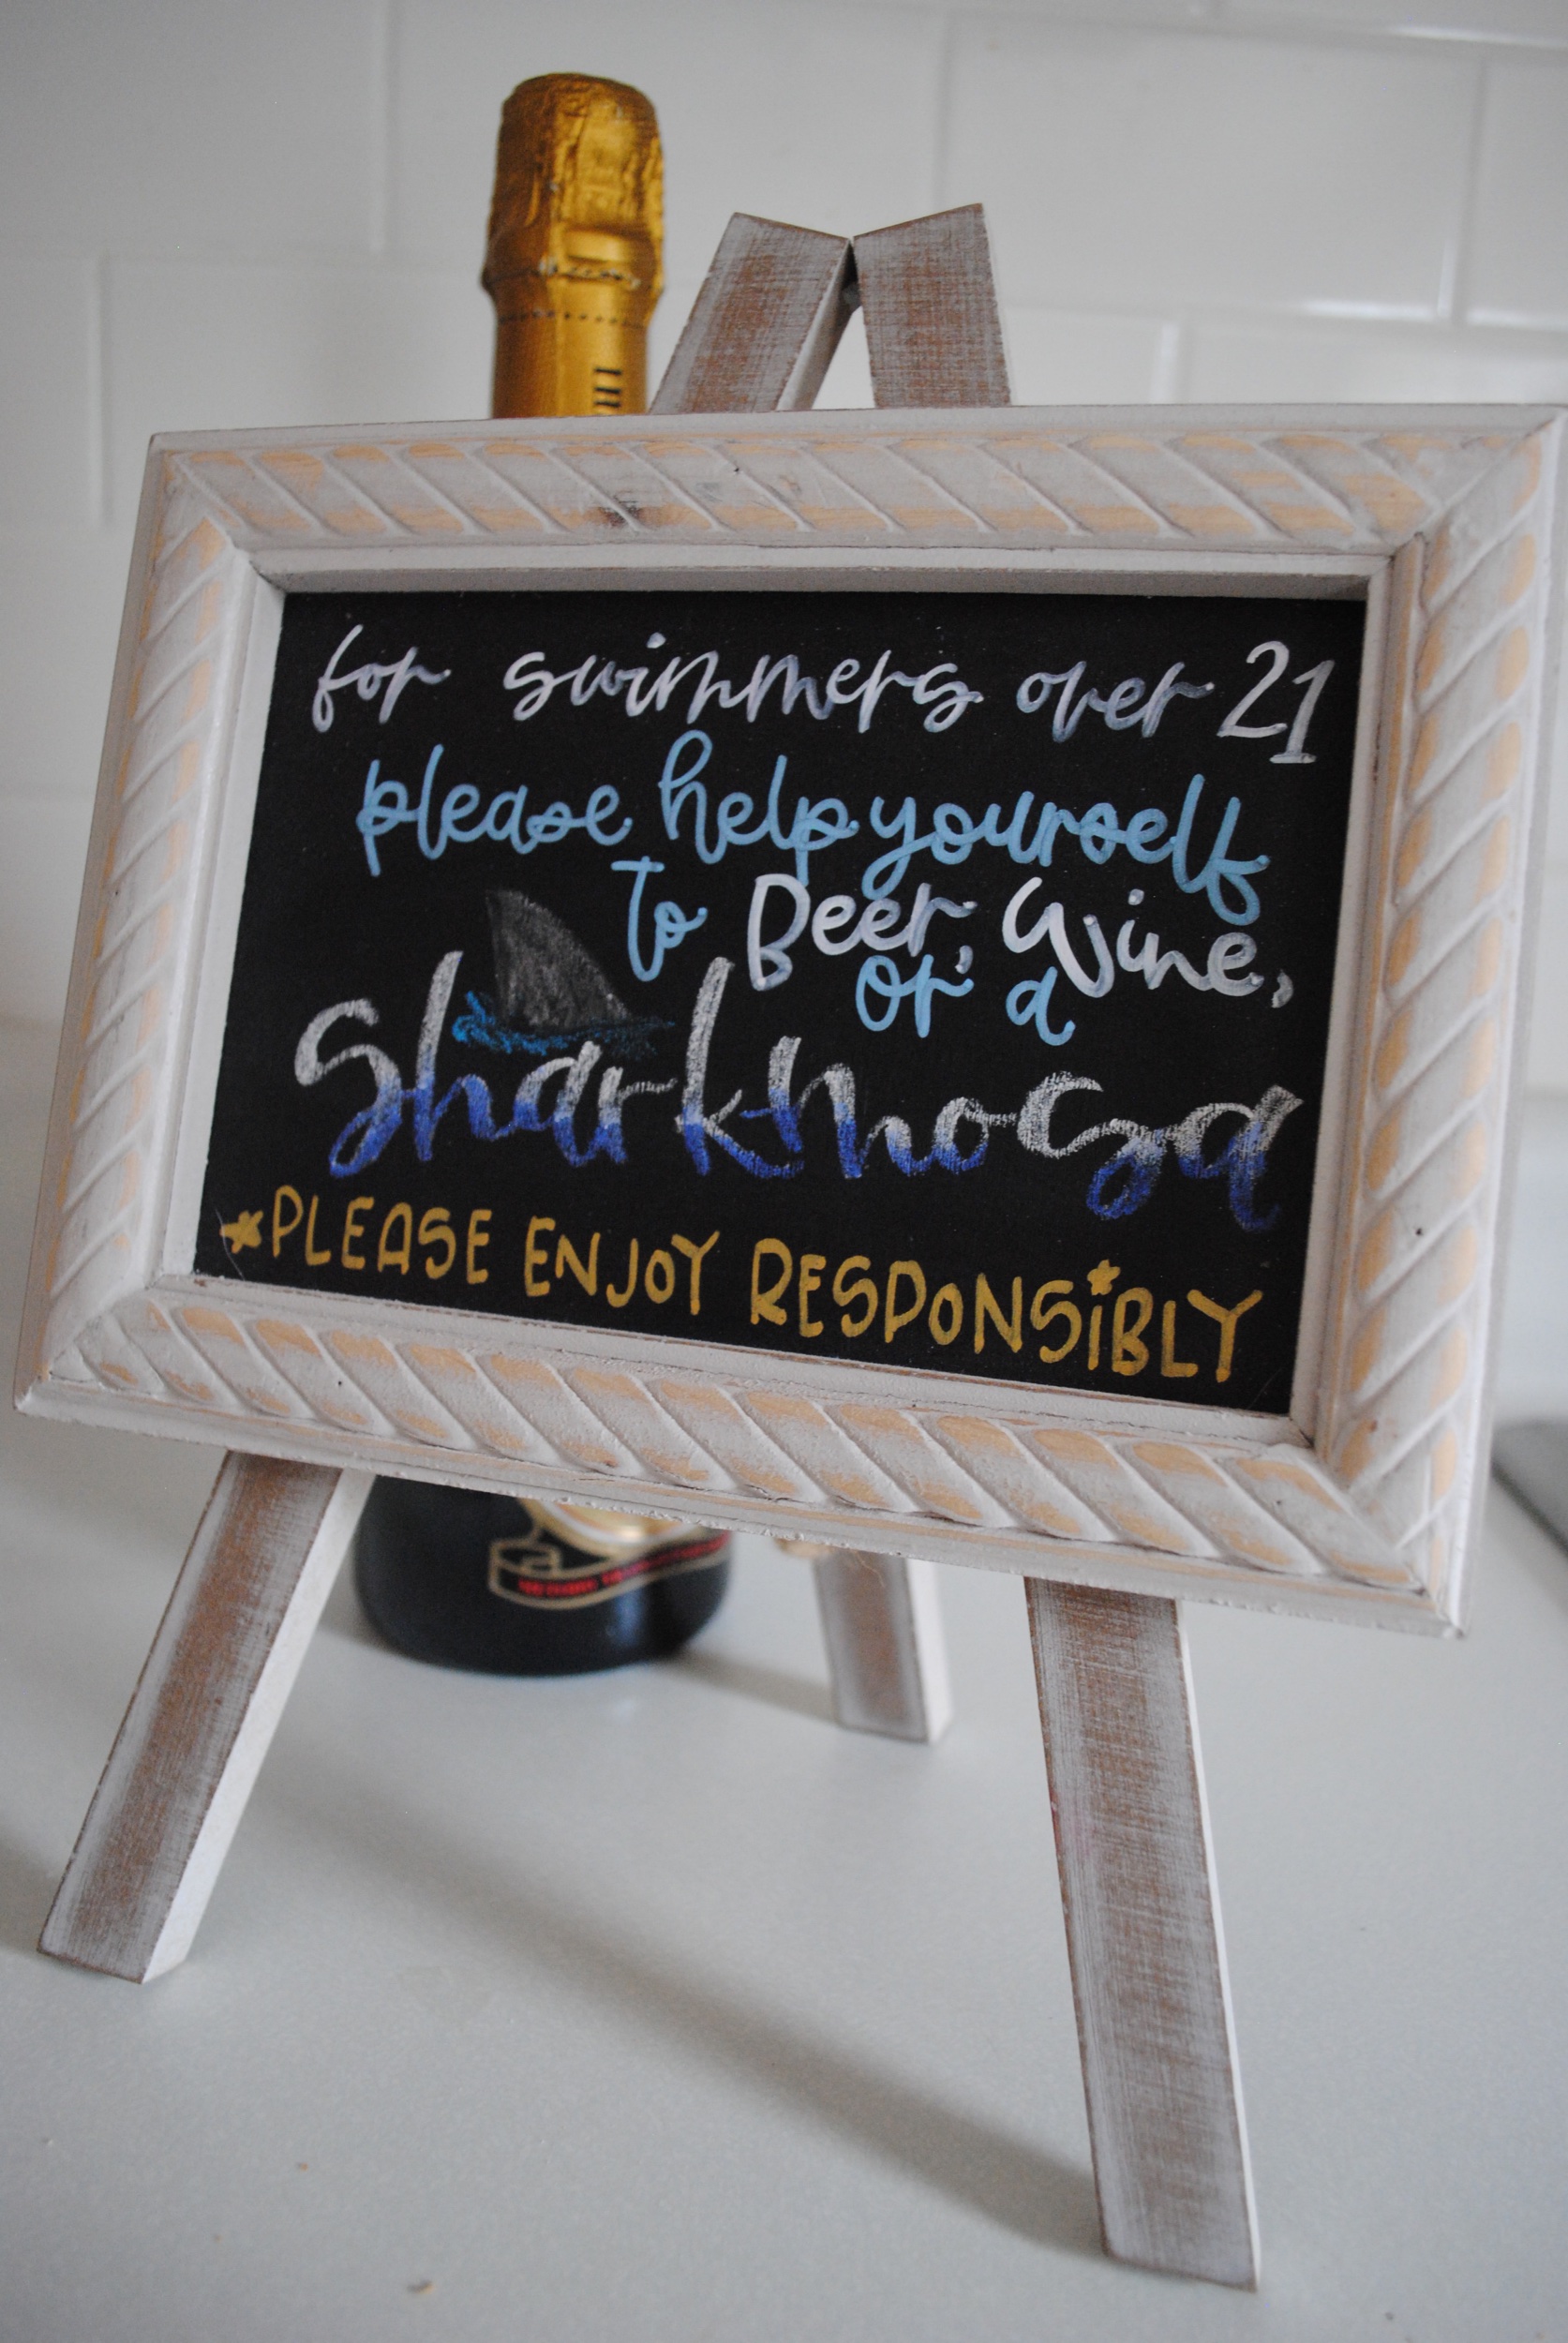 for swimmers over 21
please help yourself
to Beer, Wine,
or a
Sharkmosa
*PLEASE ENJOY RESPONSIBLY